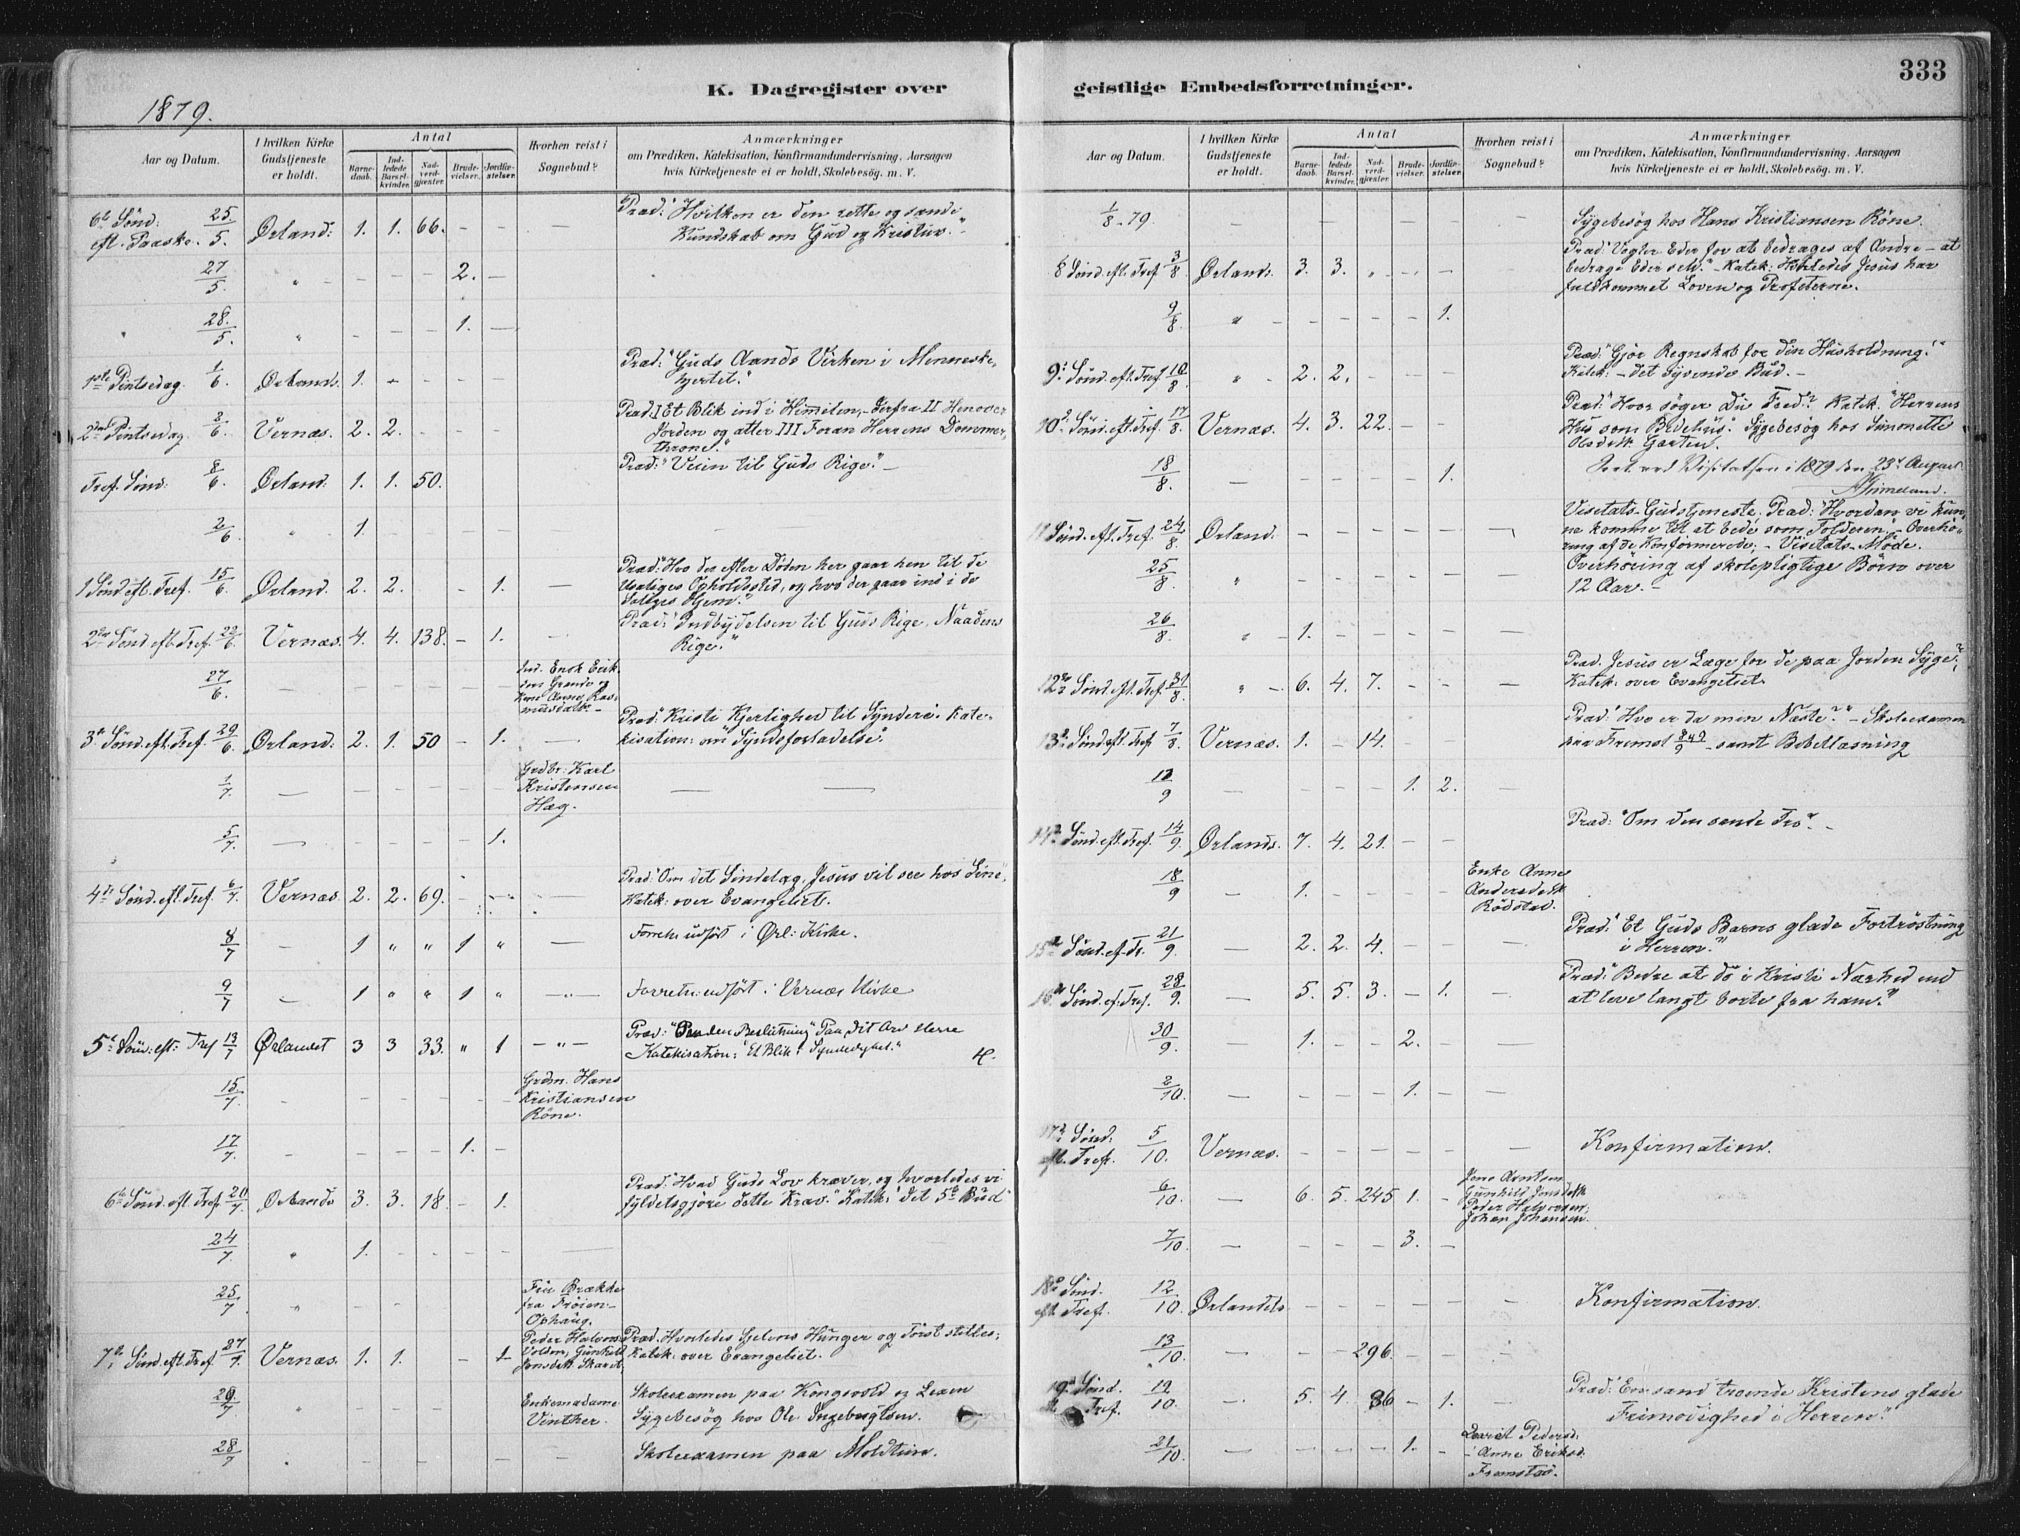 K. Dagregister over
geistlige Embedsforretninger.
333
1879.
Aar og Datum.
I hvilken Kirke Gudstjeneste er holdt.
Antal
Barnedaab.
Indledede Barselkvinder.
Nadverdgjæster.
Brudevielser.
Jordfæstelser.
Hvorhen reist i Sognebud?
Anmærkninger
om Prædiken, Katekisation, Konfirmandundervisning, Aarsagen
hvis Kirketjeneste ei er holdt, Skolebesög. m. V.
6te Sönd: eft. Paaske. 25/5. Ørland: 1. 1. 66. – – – Præd: "Hvilken er den rette og sande
Kundskab om Gud og Kristus."
27/5. " – – – – 2. –
" 28/5. " – – – 1. –
1ste Pintsedag. 1/6. Ørland. 1. – – – – Præd: "Guds Aands Virken i Menneske-
hjertet."
2den Pintsedag 2/6. Vernæs. 2. 2. – – Præd: I Et Blik ind i Himilen, – derfra II Henover
Jorden og atter III Foran Herrens Dommer-
throne."
Tref. Sönd: 8/6. Ørland: 1. 1. 50. – – Præd: "Veien til Guds Rige." –
2/6. " 1. – – – –
1 Sönd. eft. Tref. 15/6. Ørland. 2. 2. – 1. – Præd: "Hvo der efter Döden her gaar hen til de
Usaliges Opholdssted, og hvo der gaar ind i de
Saliges Hjem."
2den Sönd. eft. Tref. 22/6. Vernæs. 4. 4. 138. – 1. – Præd: "Indbydelsen til Guds Rige, Naadens
Rige."
27/6. – – – – – – Enok Erik-
sen Grande og
Kone Anne Ras-
musdatr. –
3die Sönd. eft. Tref. 29/6. Ørland: 2. 1. 50 – 1. – Præd: "Kristi Kjerlighed til Syndere." Kate-
kisation: om "Syndsforladelse".
1/7. – – – – – – Grdbr: Karl
Kristensen
Hæg. – –
5/7. – – – – – 1.
4de Sönd. eft. Tref. 6/7. Vernæs 2. 2. 69. – – – Præd: "Om det Sindelag, Jesus vil see hos Sine".
Katek: over Evangeliet.
8/7 – 1 " " 1 " – Forretn: udfört i Ørl: Kirke.
9/7 – 1 " " 1 " –"– Forretn: udfört i Vernæs Kirke
5te Sönd: eft: Tref 13/7 Ørlandet 3 3 33. " 1 –"– Præd: "Paa den Beslutning "Paa dit Ord Herre
Katekisation: "Et Blik i Syndedybet."
15/7. – – – – – – Grdm. Hans
Kristiansen
Röne.
17/7. – – – – 1. –
6te Sönd. eft. Tref. 20/7 Ørlands 3. 3. 18. – 1. Præd: "Hvad Guds Lov kræver, og hvorledes vi
fyldetsgjöre dette Krav." Katek: det 5te Bud
24/7. " 1. – – – – –
25/7 " – – – – – Brække
fra Fröien –
Ophaug.
7de Sönd. eft. Tref. 27/7. Vernæs. 1. 1. – 1 Peder Halvors.
Volden, Gunhild
Jonsdatr. Skaret, Præd: Hvorledes Sjelens Hunger og Törst stilles;
Katek: over Evangeliet.
26/7 " – – – – – Enkemadame
Vinther. Skoleexamen paa Kongsvold og Lexen
Sygebesög hos Ole Ingebregtsen.
28/7 " – – – – – – Skoleexamen paa Moldtun.
Aar og Datum.
I hvilken Kirke Gudstjeneste er holdt.
Antal
Barnedaab.
Indledede Barselkvinder.
Nadverdgjæster.
Brudevielser.
Jordfæstelser.
Hvorhen reist i Sognebud?
Anmærkninger
om Prædiken, Katekisation, Konfirmandundervisning, Aarsagen
hvis Kirketjeneste ei er holdt, Skolebesög. m. V.
1/8 – 79 – – – – – – – Sygebesög hos Hans Kristiansen Röne.
8 Sönd. eft. Tref 3/8 Ørlands. 3. 3. " – – Præd: "Vogter Eder for at bedrages af Andre – at
bedrage Eder selv." – Katek: Hvorledes Jesus har
fuldkommet Loven og Profeterne.
9/8. " – – – – – 1.
9de Sönd. eft. Tref. 10/8. " 2. 2. – – – Præd: "Gjör Regnskab for din Husholdning!"
Katek: – det Syvende Bud. –
10de Sönd. eft. Tref. 17/8. Vernæs. 4. 3. 22. – – Præd: "Hvor söger Du Fred"? Katek: "Herrens
Hus som Bedehus". Sygebesög hos Simonette
Olsdatr. Garten.
18/8. – – – – – 1. Seet ved Visitatsen i 1879 den 23de August
Grimelund.
11 Sönd. eft. Tref. 24/8. Ørland. – – – – – – Visitats-Gudstjeneste. Præd: "Hvordan vi kun-
ne komme til at bede som Tolderen". – Overhö-
ring af de Konfirmerede; – Visitats-Möde.
25/8. " – – – – – – Overhöring af skolepligtige Börn over
12 Aar. –
26/8. " 1. – – – – –
12te Sönd. eft. Tref. 31/8. " 6. 4. 7. – – – Præd. Jesus er Læge for de paa Jorden Syge".
Katek: over Evangeliet.
13de Sönd eft. Tref 7/8. Vernæs. 1. – 14. – – Præd: "Hvo er da min Næste?" – Skoleexamen
paa Fremst 8&9/9 – samt Bibellæsning
12/9 – – – 1. 2. –
14de Sönd. eft. Tref. 14/9. Ørlands. 7. 4. 21. – – Præd: "Om den sande Tro". –
18/9 – 1. – – – – Enke Anne
Andersdatr.
Rödstad.
15de Sönd. ef. Tr. 21/9. – 2. 2. 4. – – – Præd: "Et Guds Barns glade Fortröstning
i Herren."
16de Sönd. ef. Tref. 28/9. – 5. 5. 3. – 1. – Præd: "Bedre at dö i Kristi Nærhed end
at leve langt borte fra ham."
30/9. – 1. – – 2. – –
2/10. – – – – 1. – –
17de Sönd: eft. Tref. 5/10. Vernæs. – – – – – – Konfirmation.
6/10. – 6. 5. 245 1. – Jens Arntsen
Gunhild Jensdatr
Peder Halvorsen;
Johan Johansen.
7/10. – – – – 3. –
18de Sönd. eft. Tref. 12/10. Ørlandets – – – – – – Konfirmation.
13/10. – – – 296. – – –
19de Sönd. eft. Tref. 12/10. – 5. 4. 36 – 1. – Præd: "En sand troende Kristens glade
Frimodighed i Herren."
21/10. – – – – 1. – Pedersd.
Anne Eriksd.
Fremstad.